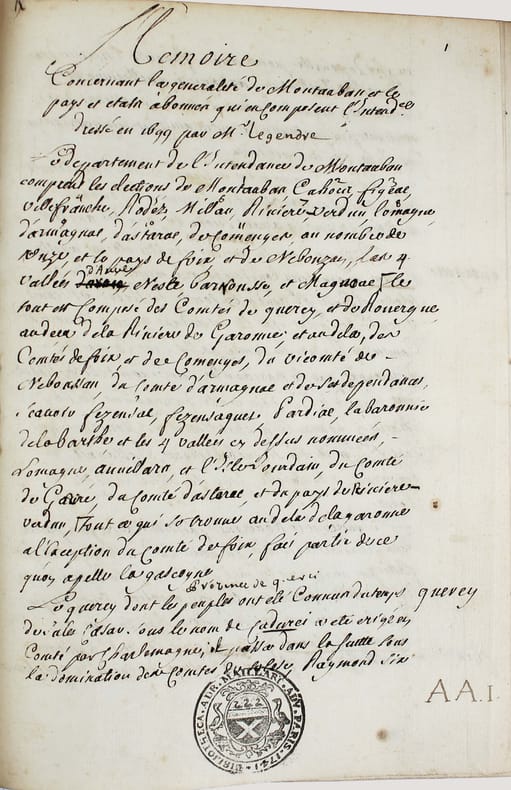 1
Memoire
Concernant la generalité de Montauban et les
pays et etats abonnez qui en Composent l'Intend.ce
dressé en 1699 par M.r Legendre
Le departement de l'intendance de Montauban
comprend les elections de Montauban Cahors, figeac,
villefranche, Rodéz, Millau, Riviere verdun lomagne,
d'armagnac, d'astarac, de Comenges, au nombre de
onze, et le pays de foix et de Nebouzan, les 4
vallées d'Aure Neste, barrousse, et Magnoac, le
tout est Composé des Comtés de quercy et de Rouergue
au deça de la Riviere de Garonne; et au dela, des
Comtés de foix et de Comenges, du vicomté de
Nebousan, du Comté d'armagnac et de ses dependances,
sçavoir fezensac, fezensaguet, Pardiac, la baronnie
de la barthe et les 4 vallées cy dessus nommées,
Lomagne, auvillars, et l'Isle Jourdain, du Comté
de Gaure, du Comté d'astarac et du pays de Riviere
verdun, Tout ce qui se trouve au dela de la garonne
a l'exception du Comté de foix, fait partie de ce
qu'on apelle la gascogne
Province de querci
Le quercy dont les peuples ont été Connus du temps
quercy
de Jules Cesar sous le nom de cadurci a eté erigé en
Comté par Charlemagne, et passa dans la suitte sous
la domination des Comtes de tolose, Raymond six
BIBLIOTHECA ADR. MAILLART ADV. PARIS. 1741
A A. 1.